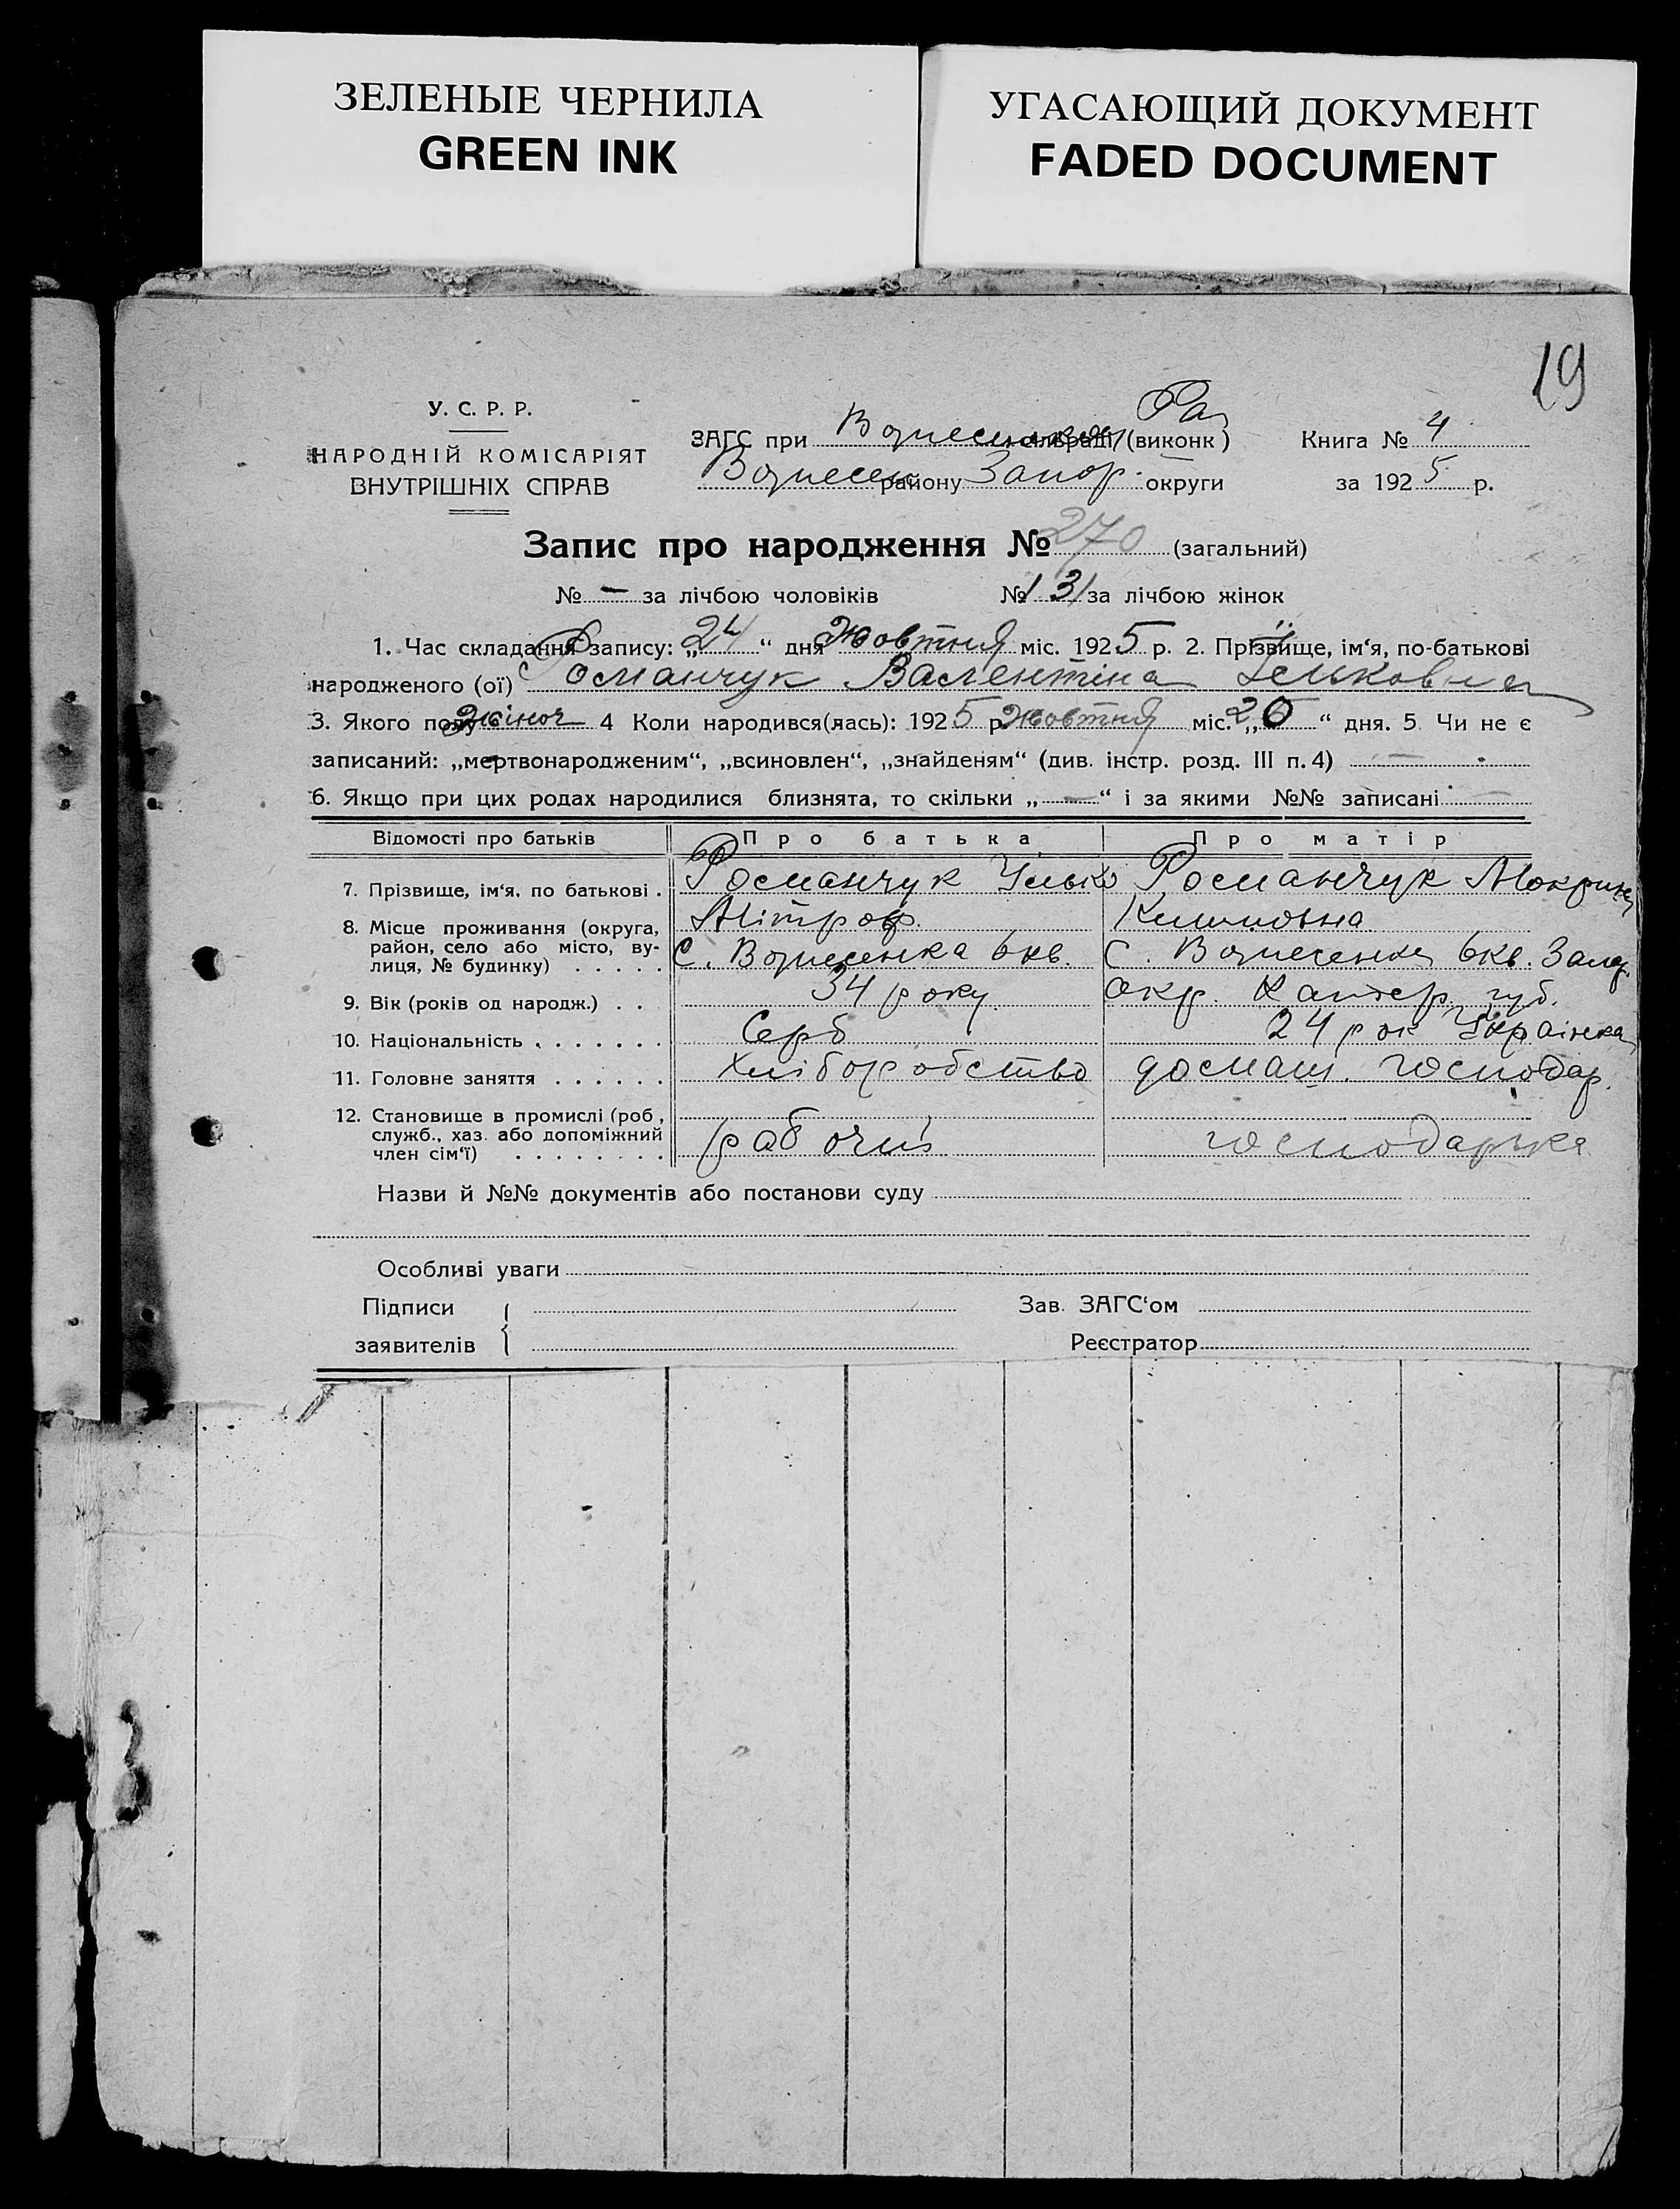 ЗЕЛЕНЫЕ ЧЕРНИЛА
GREEN INK
УГАСАЮЩИЙ ДОКУМЕНТ
FADED DOCUMENT
19
У. С. Р. Р.
НАРОДНІЙ КОМІСАРІЯТ
ВНУТРІШНІХ СПРАВ
Рай
ЗАГС при сільраді (виконк) Книга № 4
Вознесен району Запор. округи за 1925 р.
Запис про народження № 270 (загальний)
№ — за лічбою чоловіків № 131 за лічбою жінок
1. Час складання запису: „24“ дня Жовтня міс. 1925 р. 2. Прізвище, ім‘я, по-батькові
народженого (ої) Романчук Валентіна
3. Якого полу жіноч 4 Коли народився(лась): 1925 р. Жовтня міс. „20“ дня. 5 Чи не є
записаний: „мертвонародженим“, „всиновлен“, „знайденям“ (див. інстр. розд. III п. 4) —
6. Якщо при цих родах народилися близнята, то скільки „—“ і за якими №№ записані —
Відомості про батьків Про батька Про матір
7. Прізвище, ім‘я, по батькові . Романчук Ілько Романчук Мокрина
Мітроф.
8. Місце проживання (округа,
район, село або місто, ву-
лиця, № будинку) . . . . . С. Вознесенка 6 кв. С. Вознесенка 6 кв. Запор.
9. Вік (років од народж.) . . 34 року окр. Катер. губ.
10. Національність . . . . . . . Серб 24 рок Українка
11. Головне заняття . . . . . . Хліборобство домаш. господар.
12. Становище в промислі (роб.,
служб., хаз. або допоміжний
член сім‘ї) . . . . . . . . рабочий господарка
Назви й №№ документів або постанови суду
Особливі уваги
Підписи Зав. ЗАГС‘ом
заявителів Реєстратор